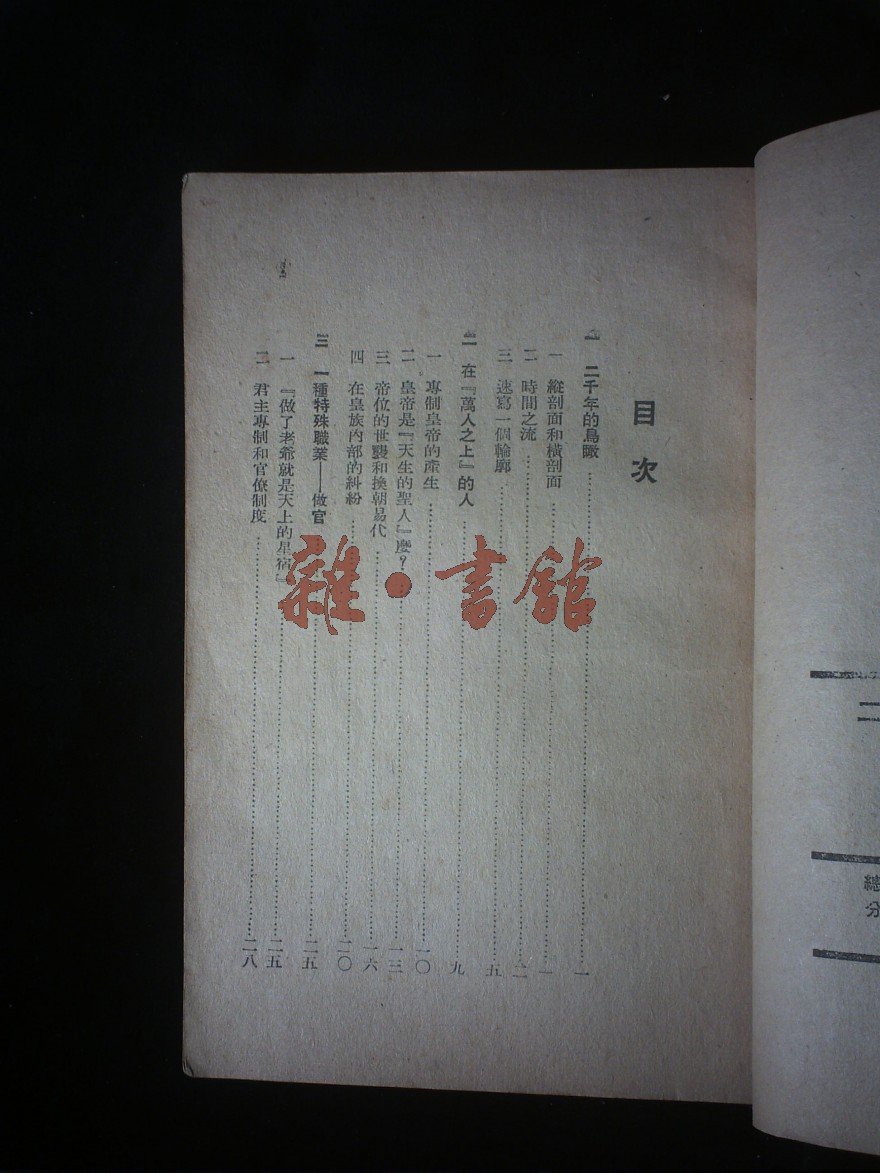 目次
一 二千年的鳥瞰……一
一 縱剖面和橫剖面……一
二 時間之流……二
三 速寫一個輪廓……五
二 在『萬人之上』的人……九
一 專制皇帝的產生……一〇
二 皇帝是『天生的聖人』麼?……一三
三 帝位的世襲和換朝易代……一六
四 在皇族內部的糾紛……二〇
三 一種特殊職業——做官……二五
一 『做了老爺就是天上的星宿』……二五
二 君主專制和官僚制度……二八
雜·書館
二
總
分